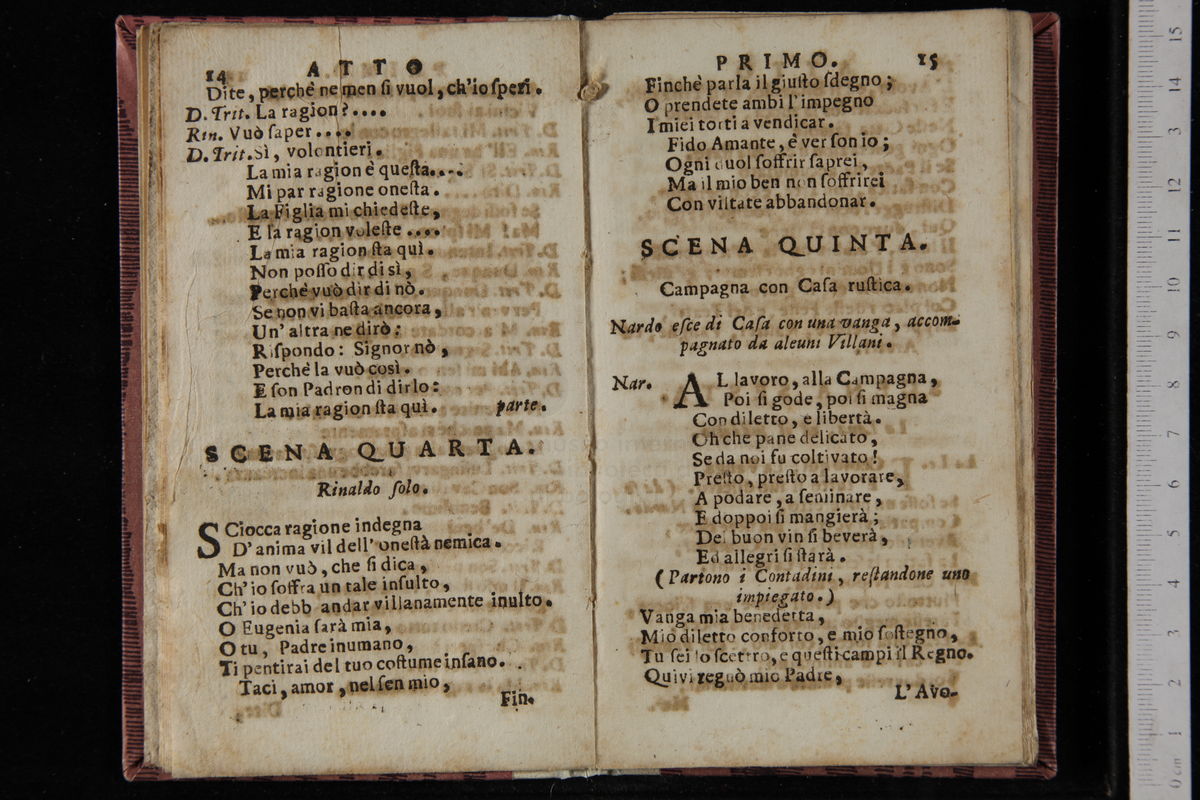 14 ATTO
Dite, perchè nemen ſi vuol, ch'io ſperi.
D. Trit. La ragion?....
Rin. Vuò ſaper....
D. Trit. Sì, volontieri.
La mia ragion è queſta....
Mi par ragione oneſta.
La Figlia mi chiedeſte,
E la ragion voleſte....
La mia ragion ſta quì.
Non poſſo dir di sì,
Perchè vuò dir di nò.
Se non vi baſta ancora,
Un' altra ne dirò:
Riſpondo: Signor nò,
Perchè la vuò così.
E ſon Padron di dirlo:
La mia ragion ſta quì. parte.
SCENA QUARTA.
Rinaldo ſolo.
SCiocca ragione indegna
D'anima vil dell' oneſtà nemica.
Ma non vuò, che ſi dica,
Ch'io ſoffra un tale inſulto,
Ch'io debb andar villanamente inulto.
O Eugenia ſarà mia,
O tu, Padre inumano,
Ti pentirai del tuo coſtume inſano.
Taci, amor, nel ſen mio,
Fin.
PRIMO. 15
Finchè parla il giuſto ſdegno;
O prendete ambi l'impegno
I miei torti a vendicar.
Fido Amante, è ver ſon io;
Ogni duol ſoffrir ſaprei,
Ma il mio ben non ſoffrirei
Con viltate abbandonar.
SCENA QUINTA.
Campagna con Caſa ruſtica.
Nardo eſce di Caſa con una vanga, accom-
pagnato da alcuni Villani.
Nar. AL lavoro, alla Campagna,
Poi ſi gode, poi ſi magna
Con diletto, e libertà.
Oh che pane delicato,
Se da noi fu coltivato!
Preſto, preſto a lavorare,
A podare, a ſeminare,
E doppoi ſi mangierà;
Del buon vin ſi beverà,
Ed allegri ſi ſtarà.
(Partono i Contadini, reſtandone uno
impiegato.)
Vanga mia benedetta,
Mio diletto conforto, e mio ſoſtegno,
Tu ſei lo ſcettro, e queſti campi il Regno.
Quivi regnò mio Padre,
L'Avo-
0 cm 1 2 3 4 5 6 7 8 9 10 11 12 13 14 15